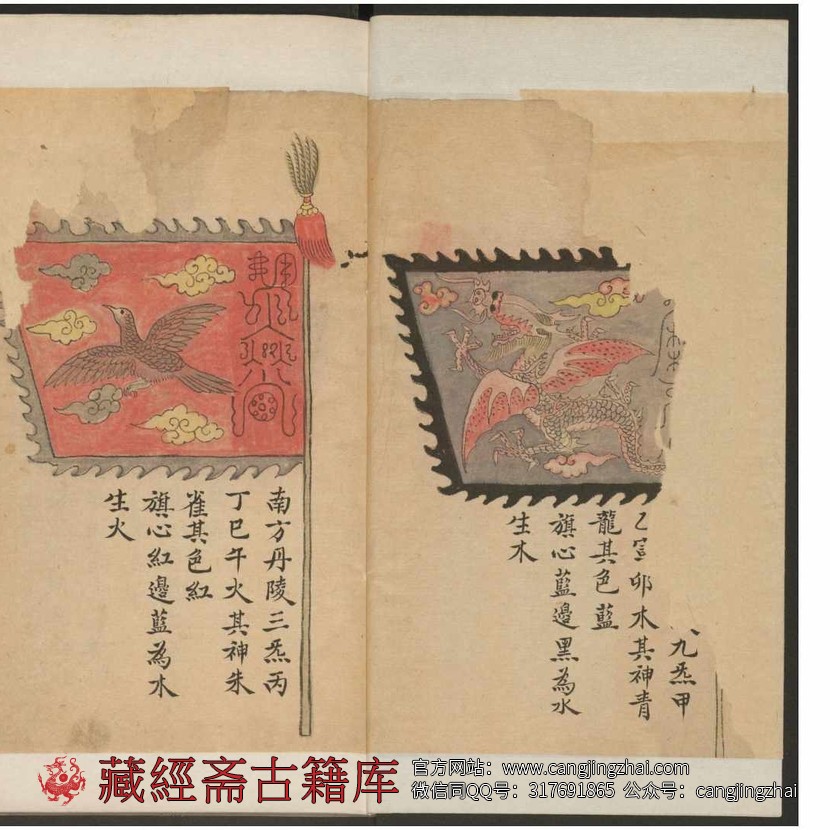 九炁甲
乙寅卯木其神青
龍其色藍
旗心藍邊黑為水
生木
南方丹陵三炁丙
丁巳午火其神朱
雀其色紅
旗心紅邊藍為木
生火
藏經斋古籍库
官方网站：www.cangjingzhai.com
微信同QQ号：317691865 公众号：cangjingzhai